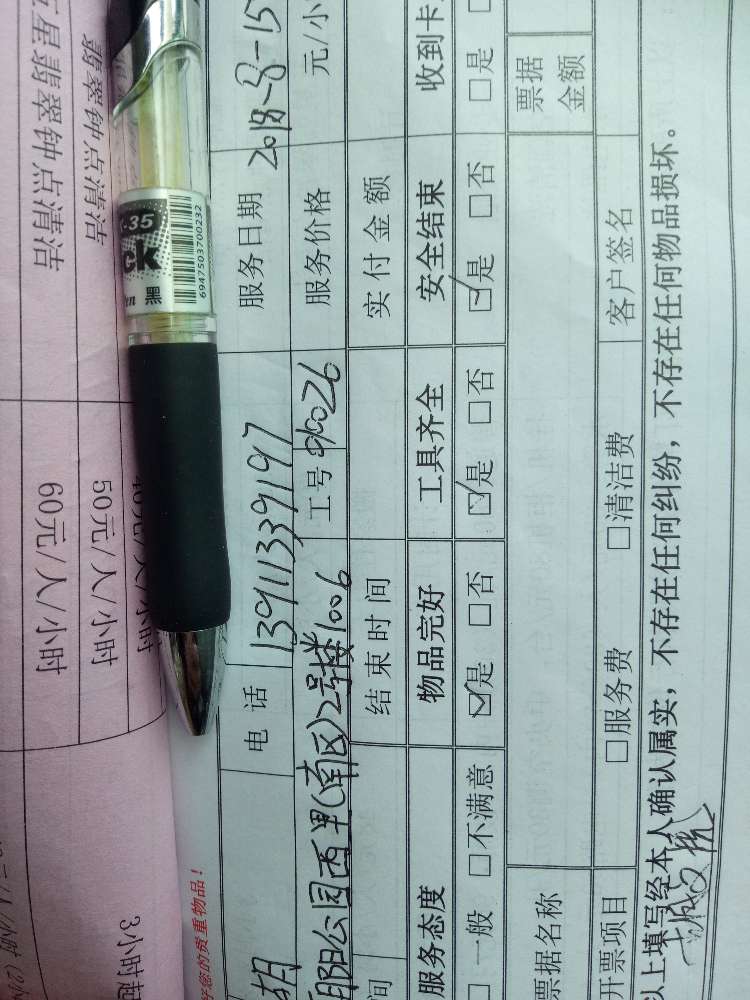 五星翡翠钟点清洁
翡翠钟点清洁
60元/人/小时
50元/人/小时
元/人/小时
3小时起
-35
CK
6947503700232
好您的贵重物品！
胡
电 话
13911339197
服务日期
2018-8-15
朝阳公园西里(南区)2号楼1006
工号
服务价格
元/小
间
结束时间
实付金额
服务态度
物品完好
工具齐全
安全结束
收到卡
□ 一般 □不满意
☑是 □否
☑是 □否
☑是 □否
□是
票据名称
票据
金额
开票项目
□服务费
□清洁费
客户签名
以上填写经本人确认属实，不存在任何纠纷，不存在任何物品损坏。